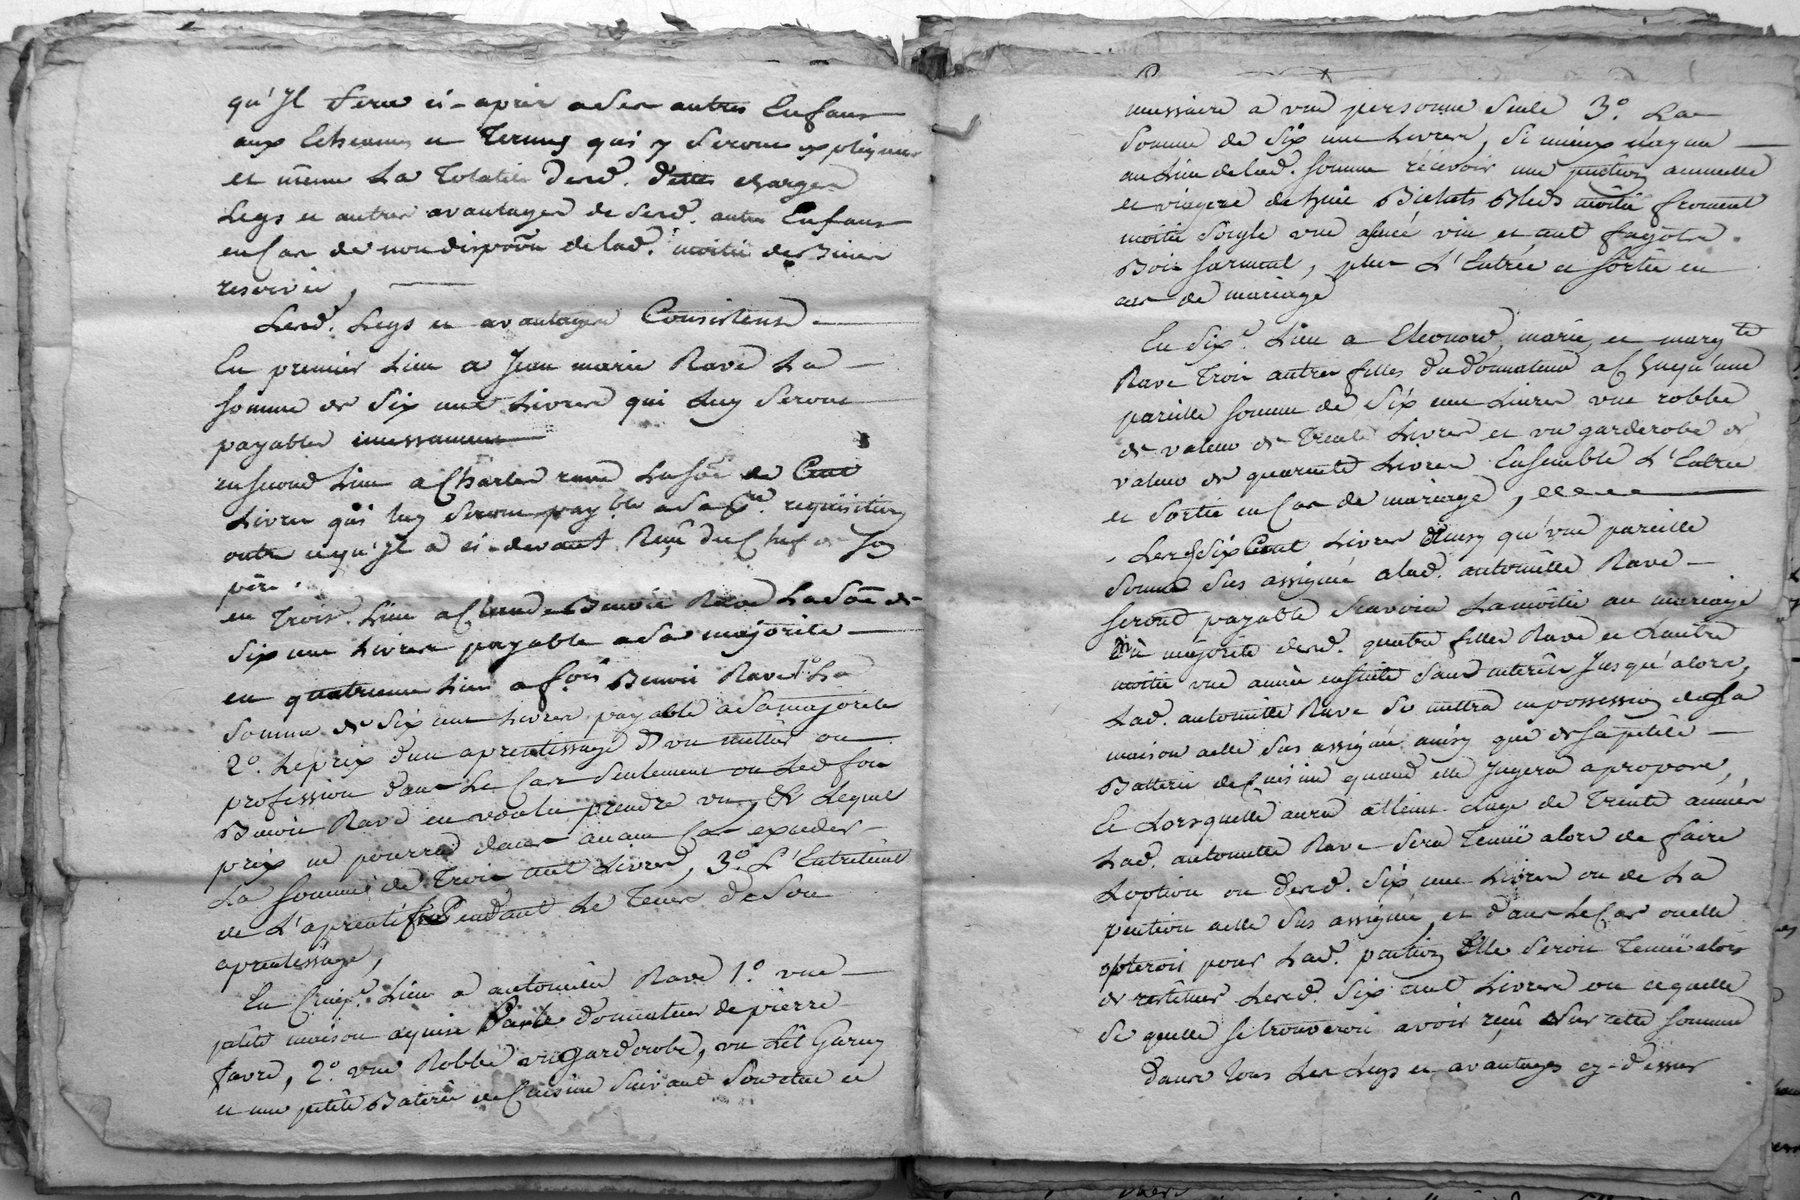 qu'Il fera ci-après a ses autres Enfans
aux Echeances et Termes qui y seront expliqués
et même La Totalité desd. dettes charges
Legs et autres avantages de sesd. autres Enfans
en Cas de non disposõn de lad. moitié des Biens
reservée,
Lesd. Legs et avantages Consistent
En premier Lieu a Jean marie Rave La
somme de Six cent Livres qui luy seront
payables incessamment
en second Lieu a Charles rave La sõe de Cent
Livres qui luy seront pay.bles a sa p.re requisition
outre ce qu'Il a ci-devant Reçu du Chef de son
père.
en Trois.e Lieu a Claude Benoit Rave La Sõe de
Six cent Livres payable a sa majorité
en quatrieme Lieu a fois Benoit Rave 1.o La
Somme de Six cent Livres payable a sa majorité
2.o Le prix d'un aprentissage d'un métier ou
profession dans Le Cas Seulement ou Led fois
Benoit Rave en voulu prendre un, et Lequel
prix ne pourra dans aucun Cas exceder
La Somme de Trois cent Livres, 3.o L'Entretient
de L'aprentif Pendant Le Tems de Son
aprentissage,
En Cinq.e Lieu a antoinette Rave 1.o une
petite maison aquise Par le donnateur de pierre
favre, 2.o une Robbe un garderobe, un Lit Garny
et une petite Baterie de Cuisine Suivant Son etat et
necessaire a une personne Seule 3.o La
Somme de Six cent Livres, Si mieux n'ayme
au Lieu de lad. Somme récevoir une pention annuelle
et viagere de huit Bichets Bled moitié froment
moitié Soigle une année vin et cent fagots
Bois sarment, plus L'Entrée et Sortie en
cas de mariage
En Six.e Lieu a Eleonord, marie, et marg.te
Rave Trois autres filles du donnateur a Chaqu'une
pareille somme de Six cent Livres une robbe
de valeur de Trente Livres et un garderobe de
valeur de quarente Livres Ensemble L'Entrée
et Sortie en Cas de mariage,
Lesd. Six Cent Livres Ainsy qu'une pareille
Somme Sus assignée a lad. antoinette Rave
seront payable Scavoir La moitié au mariage
ou majorité desd. quatre filles Rave et L'autre
moitié une année ensuite Sans interêts Jusqu'alors,
Lad. antoinette Rave Se mettra en possession de La
maison a elle Sus assignée ainsy que de sa petite
Batterie de Cuisine quand elle Jugera apropos,
Et Lorsquelle aura atteint L'age de Trente années
Lad. antoinette Rave Sera Tenuë alors de faire
L'option ou desd. Six cent Livres ou de La
pention a elle Sus assignée, et dans Le Cas ou elle
opterois pour Lad. pention Elle Seroit Tenuë alors
de restituer Lesd. Six cent Livres ou ce quelle
Se quelle Se trouveroit avoir reçu Sur cette Somme
dans tous Les Legs et avantages cy-dessus